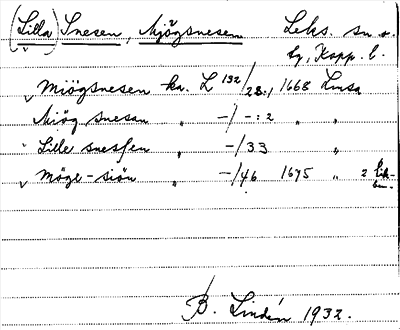 (Lilla) Snesen, Mjögsnesen Leks. sn o.
Kopp. l.
Miögsnesen ka. L 132/28:1 1668 Lmsa
Miög snesen " -/-:2 " "
Lille snessen " -/33 "
Möge-siön " -/46 1675 " 2
B. Lindén 1932.